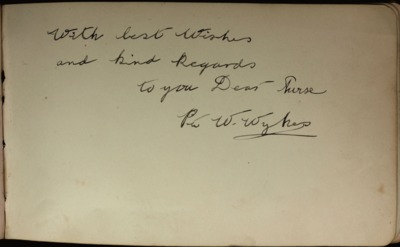 With best Wishes
and kind Regards
to you Dear Nurse
Pte W. Wykes